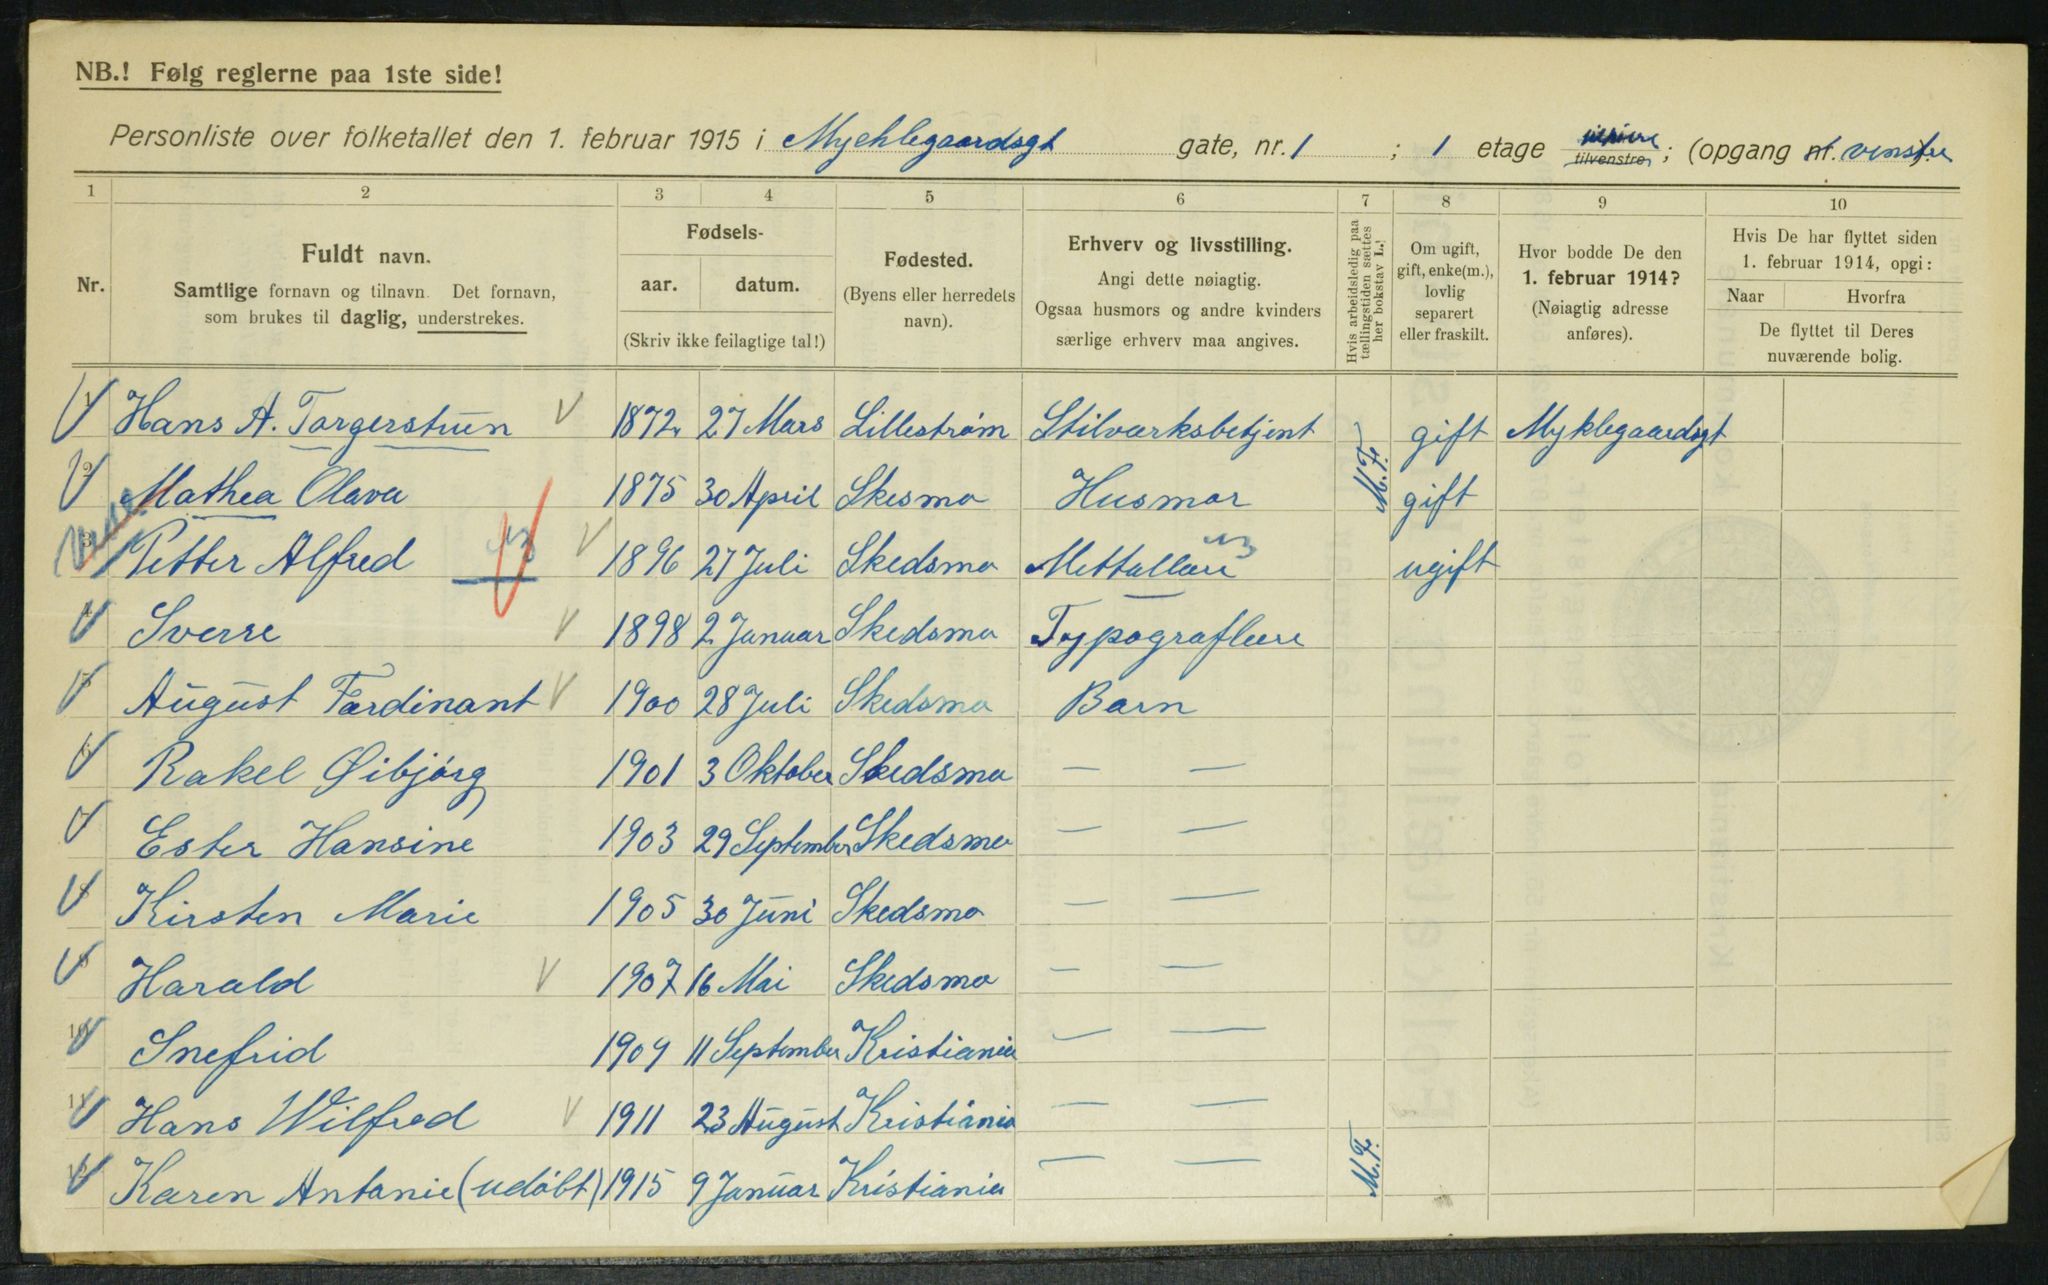 NB.! Følg reglerne paa 1ste side!
Personliste over folketallet den 1. februar 1915 i Myehlegaardsgt gate, nr. 1 ; 1 etage tilvenstre ; (opgang nr. venstre
1 2 3 4 5 6 7 8 9 10
Nr.
Fuldt navn.
Samtlige fornavn og tilnavn. Det fornavn,
som brukes til daglig, understrekes.
Fødsels-
aar. datum.
(Skriv ikke feilagtige tal!)
Fødested.
(Byens eller herredets
navn).
Erhverv og livsstilling.
Angi dette nøiagtig.
Ogsaa husmors og andre kvinders
særlige erhverv maa angives.
Hvis arbeidsledig paa
tællingstiden sættes
her bokstav L.!
Om ugift,
gift, enke(m.),
lovlig
separert
eller fraskilt.
Hvor bodde De den
1. februar 1914?
(Nøiagtig adresse
anføres).
Hvis De har flyttet siden
1. februar 1914, opgi:
Naar Hvorfra
De flyttet til Deres
nuværende bolig.
1 Hans A. Torgerstuen 1872 27 Mars Lillestrøm Stilværksbetjent gift Myklegaardsgt
2 Mathea Olava 1875 30 April Skesmo Husmor M.F. gift
3 Petter Alfred 1896 27 Juli Skedsmo Mettallære ugift
4 Sverre 1898 2 Januar Skedsmo Typograflære
5 August Færdinant 1900 28 Juli Skedsmo Barn
6 Rakel Øibjørg 1901 3 Oktober Skedsmo — —
7 Ester Hansine 1903 29 September Skedsmo — —
8 Kirsten Marie 1905 30 Juni Skedsmo — —
9 Harald 1907 16 Mai Skedsmo — —
10 Snefrid 1909 11 September Kristiania — —
11 Hans Wilfred 1911 23 August Kristiania — —
12 Karen Antonie (udøbt) 1915 9 Januar Kristiania — — M.F.